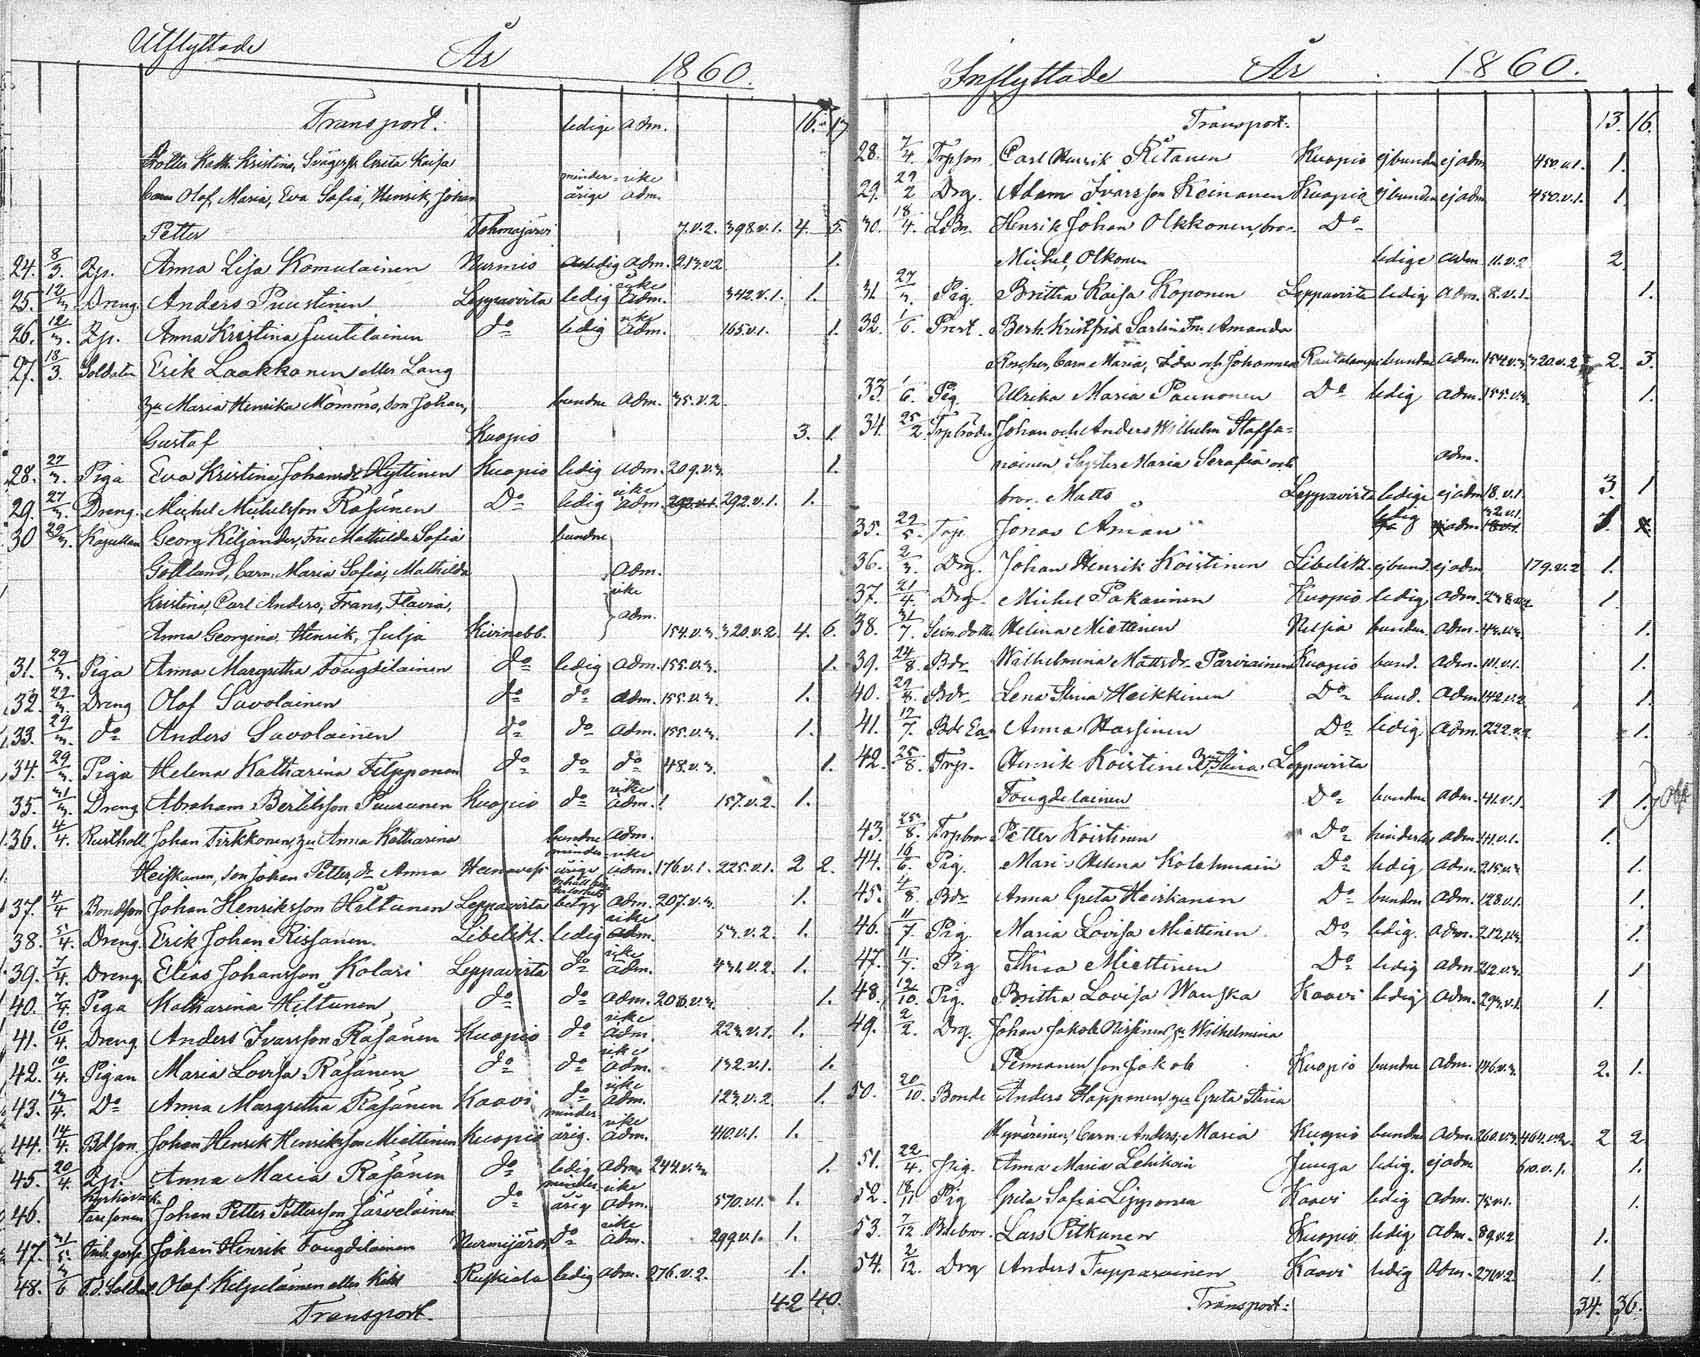 Utflyttade År 1860.
Transport. ledige adm. 16. 17
Kath. Kristina, Greta Kaisa
barn Olof, Maria, Eva Sofia, Henrik, Johan minder-årige icke adm.
Petter Tohmajärvi 7.v.2. 398.v.1. 4. 5.
24. 8/3. Zp. Anna Lisa Komulainen Nurmis ledig adm. 213.v.2 1.
25. 12/3 Dreng Anders Puustinen Leppävirta ledig icke adm. 342.v.1. 1.
26. 12/3. Zp. Anna Kristina Luutilainen do ledig icke adm. 165.v.1. 1.
27. 18/3. Soldaten Erik Laakkonen eller Lang
Maria Henrika Mömmö, son Johan, bundne adm. 35.v.2.
Gustaf Kuopio 3. 1.
28. 27/3. Piga Eva Kristina Johansdr Hyttinen Kuopio ledig adm. 209.v.3. 1.
29. 27/3. Dreng. Michel Michelsson Räsänen Do ledig icke adm. 292.v.1. 1.
30 29/3. Kapellan Georg Kiljander, Fru Mathilda Sofia bundne
Gottlund, barn: Maria Sofia, Mathilda adm.
Kristina, Carl Anders, Frans, Flavia, icke
Anna Georgina, Henrik, Julja Kivinebb. adm. 154.v.3. 320.v.2. 4. 6.
31. 29/3 Piga Anna Margretha Fougdilainen do ledig adm. 155.v.3. 1.
32. 29/3 Dreng Olof Savolainen do do adm. 155.v.3. 1.
33. 29/3 do Anders Savolainen do do adm. 155.v.3. 1.
34. 29/3 Piga Helena Katharina Filpponen do do do 48.v.3. 1.
35. 31/3 Dreng Abraham Bertelsson Suuronen Kuopio do icke adm. 157.v.2. 1.
36. 4/4. Rusthåll Johan Tirkkonen, Anna Katharina bundne adm.
Heiskanen, son Johan Petter, dr Anna Heinävesi minder-årige icke adm. 176.v.1. 225.v.1. 2 2.
37. 4/4 Bondson Johan Henriksson Hiltunen Leppävirta betyg adm. 207.v.3. 1.
38. 5/4. Dreng. Erik Johan Rissanen. Libelitz. ledig icke adm. 53.v.2. 1.
39. 7/4. Dreng. Elias Johansson Kolari Leppävirta do icke adm. 431.v.2. 1.
40. 7/4. Piga Katharina Hiltunen do do adm. 206.v.3. 1.
41. 10/4. Dreng Anders Ivarsson Räsänen Kuopio do icke adm. 223.v.1. 1.
42. 10/4. Pigan Maria Lovisa Räsänen do do icke adm. 132.v.1. 1.
43. 13/4. Do Anna Margretha Räsänen Kaavi do icke adm. 123.v.2. 1.
44. 14/4. Bdson Johan Henrik Henriksson Miettinen Kuopio minder-årig. icke adm. 40.v.1. 1.
45. 20/4. Zp. Anna Maria Räsänen do ledig adm. 244.v.3. 1.
46. Johan Petter Pettersson Järveläinen do minder-årig icke adm. 570.v.1. 1.
47. Johan Henrik Fougdelainen Nurmijärvi do icke adm. 299.v.1. 1.
48. 3/6 Olof Kiljulainen eller Kihl Ruskiala ledig adm. 276.v.2. 1.
Transport. 42 40.
Inflyttade År 1860.
Transport. 13. 16.
28. 7/4. Torpson Carl Henrik Ritanen Kuopio ej bunden ej adm 450.v.1. 1.
29. 29/2 Drg. Adam Ivarsson Keinanen Kuopio ej bunden ej adm. 450.v.1. 1.
30. 18/4. Henrik Johan Olkkonen, bror Do
Michel Olkonen ledige adm. 11.v.2 2.
31 27/3. Pig. Britha Kaisa Koponen Leppävirta ledig adm. 8.v.1. 1.
32. 1/6. Prest. Berh. Kristfrid Sarlin Fru Amanda
barn Maria, Ida och Johannes Rautalampi bundne adm. 154.v.3. 320.v.2 2. 3.
33. 1/6. Pig Ulrika Maria Paunonen Do ledig adm. 155.v.3. 1.
34. 25/2. Torpbröder Johan och Anders Wilhelm Staffa-
noinen, Syster Maria Serafia och adm.
bror Matts Leppävirta ledige ej adm 18.v.1. 3. 1
35. 29/5. Torp. Jonas Åman ledig adm 32.v.1. 1.
36. 2/3. Drg. Johan Henrik Koistinen Libelitz. ej bund. ej adm 179.v.2 1.
37. 21/4. Drg. Michel Pakarinen Kuopio ledig adm. 238.v.2 1.
38. 31/7. Helena Miettinen Nilsiä bunden adm. 43.v.3. 1.
39. 24/8. Bdr Wilhelmina Mattsdr. Parviainen Kuopio bund. adm. 111.v.1. 1.
40. 29/3. Bdr Lena Stina Heikkinen Do bund. adm 142.v.2. 1.
41. 12/7. Anna Hassinen Do ledig adm. 222.v.2. 1.
42. 25/8. Torp. Henrik Koistinen Stina Leppävirta
Fougdelainen Do bundne adm. 41.v.1. 1 1.
43. 25/8. Torpbror Petter Koistinen Do adm. 41.v.1. 1.
44. 16/6. Pig. Maria Helena Kolehmain Do ledig adm. 215.v.3. 1.
45. 4/8. Bdr Anna Greta Heiskanen Do bunden adm. 128.v.1. 1.
46. 11/7. Pig Maria Lovisa Miettinen Do ledig. adm. 212.v.3. 1.
47. 11/7. Pig Stina Miettinen Do ledig adm 212.v.3. 1
48. 12/10. Pig. Britha Lovisa Wanska Kaavi ledig adm. 293.v.1. 1.
49. 2/2. Drg. Johan Jakob Nissinen Wilhelmina
Pennanen son Jakob Kuopio bundne adm. 146.v.3. 2. 1.
50. 20/10. Bonde Anders Happonen, Greta Stina
Hyvärinen, barn Anders, Maria Kuopio bundne adm. 260.v.3. 464.v.2. 2 2
51. 22/4. Pig. Anna Maria Lehikoin Juuga ledig. ej adm 60.v.1. 1.
52. 18/11 Pig Greta Sofia Lipponen Kaavi ledig adm. 75.v.1. 1.
53. 7/12 Bdebror. Lars Pitkanen Kuopio ledig adm. 89.v.2 1.
54. 2/12. Drg Anders Tupparainen Kaavi ledig adm. 271.v.2 1.
Transport. 34. 36.